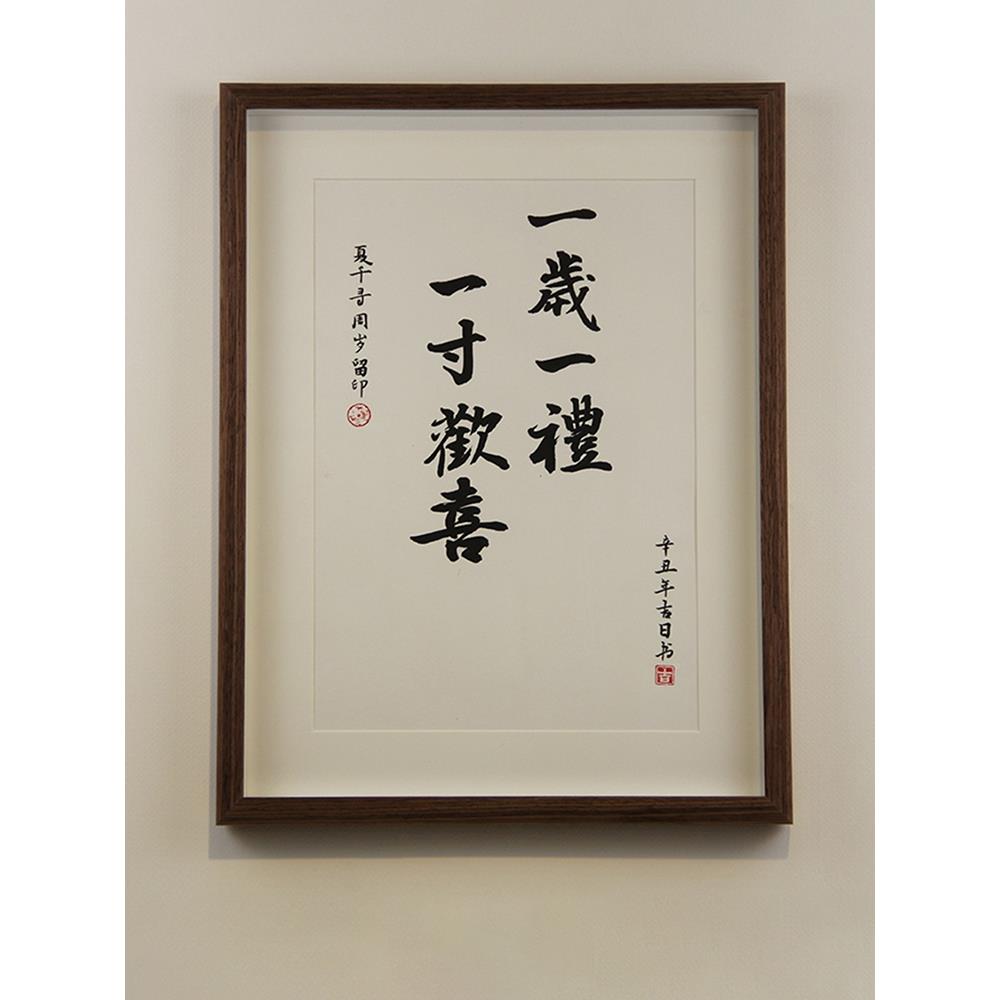 一歲一禮
一寸歡喜
夏千寻周岁留印
辛丑年吉日书
吉